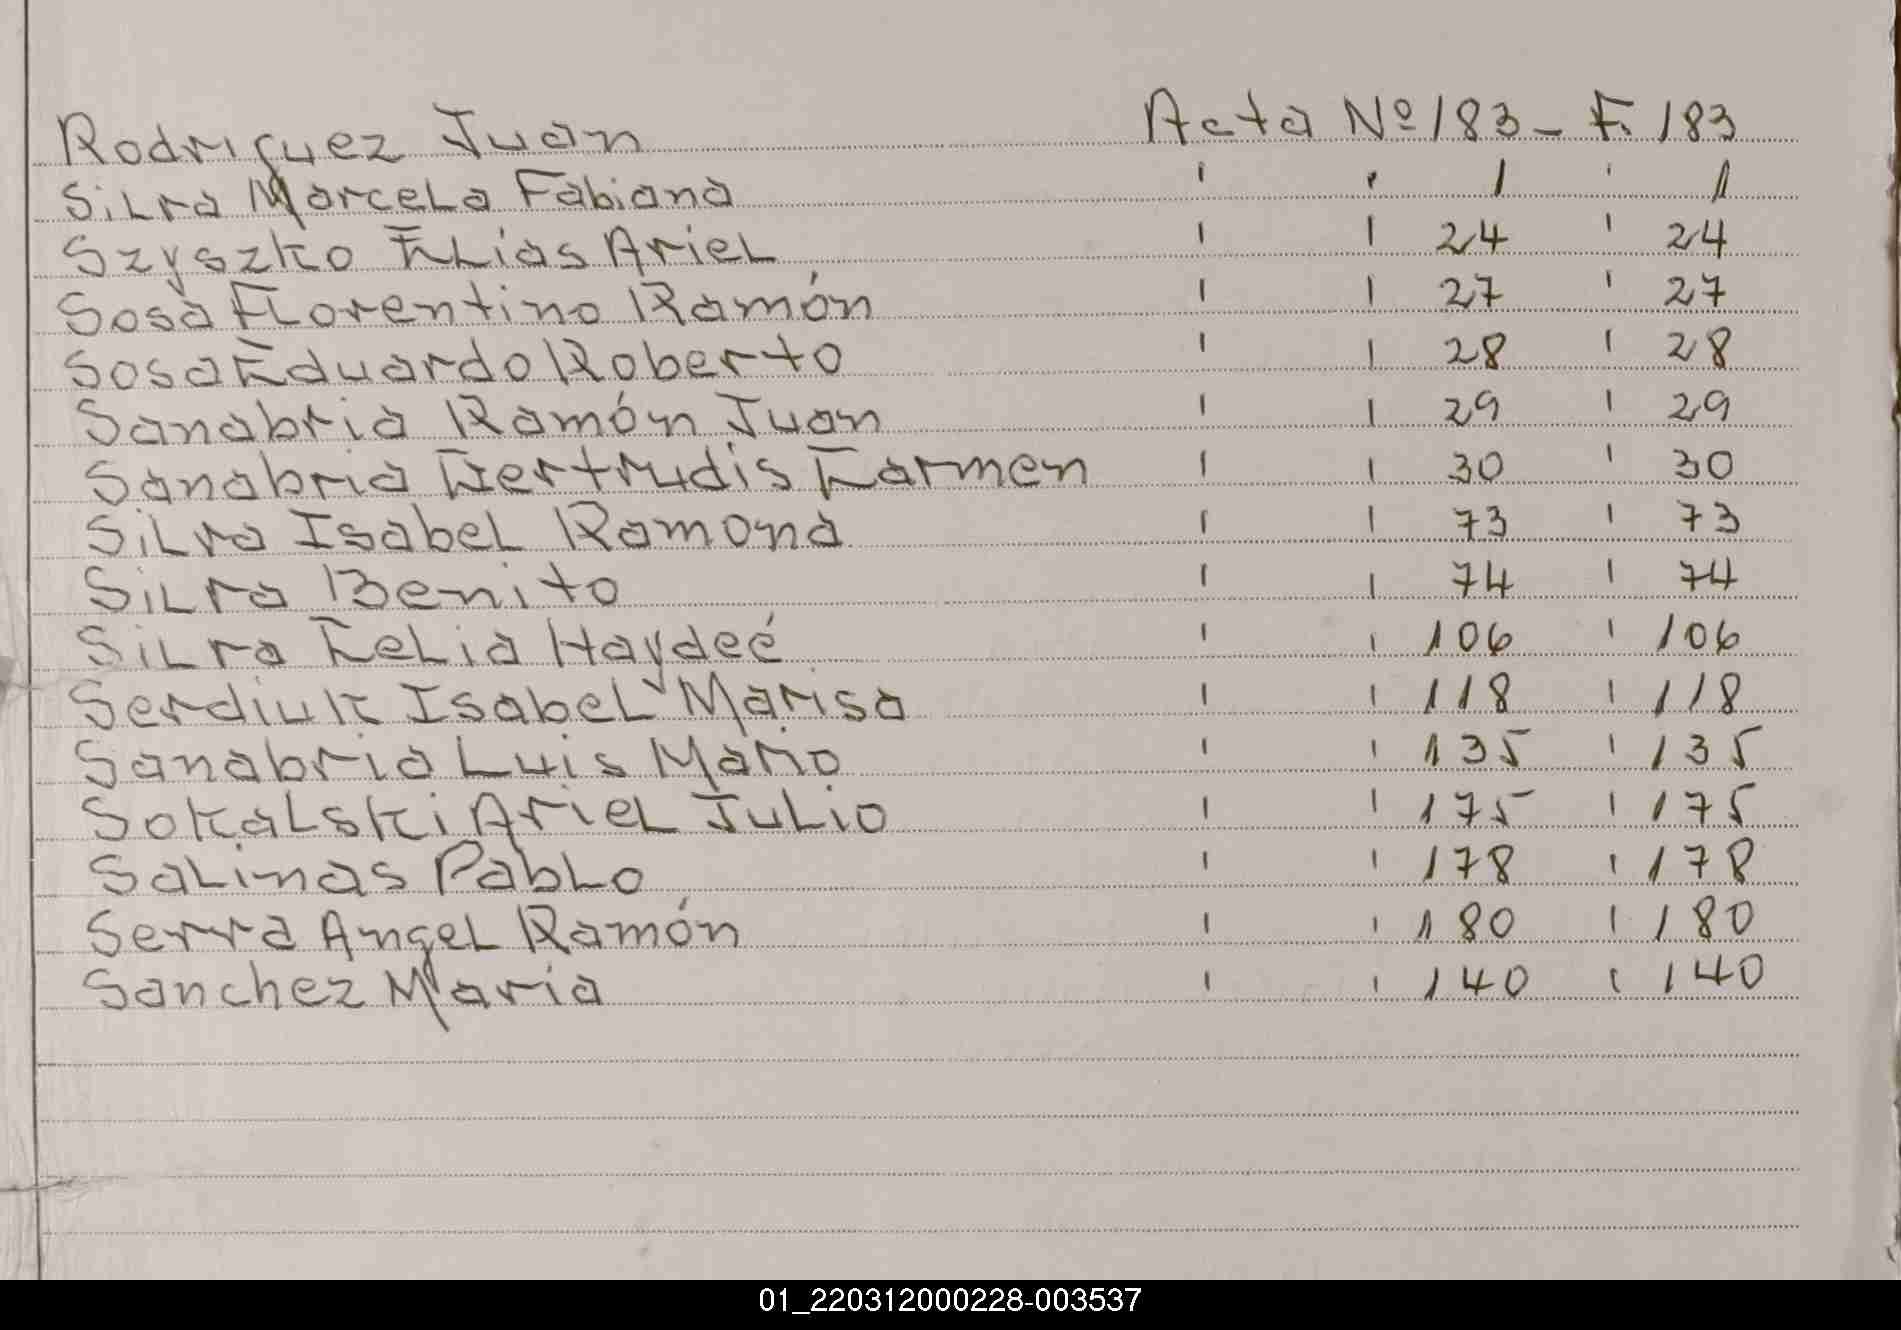 Rodriguez Juan Acta Nº 183 - F. 183
Silva Marcela Fabiana ' ' 1 ' 1
Szyszko Elias Ariel ' ' 24 ' 24
Sosa Florentino Ramón ' ' 27 ' 27
Sosa Eduardo Roberto ' ' 28 ' 28
Sanabria Ramón Juan ' ' 29 ' 29
Sanabria Gertrudis Carmen ' ' 30 ' 30
Silva Isabel Ramona ' ' 73 ' 73
Silva Benito ' ' 74 ' 74
Silva Celia Haydeé ' ' 106 ' 106
Serdiuk Isabel Marisa ' ' 118 ' 118
Sanabria Luis Mario ' ' 135 ' 135
Sokalski Ariel Julio ' ' 175 ' 175
Salinas Pablo ' ' 178 ' 178
Serra Angel Ramón ' ' 180 ' 180
Sanchez Maria ' ' 140 ' 140
01_220312000228-003537